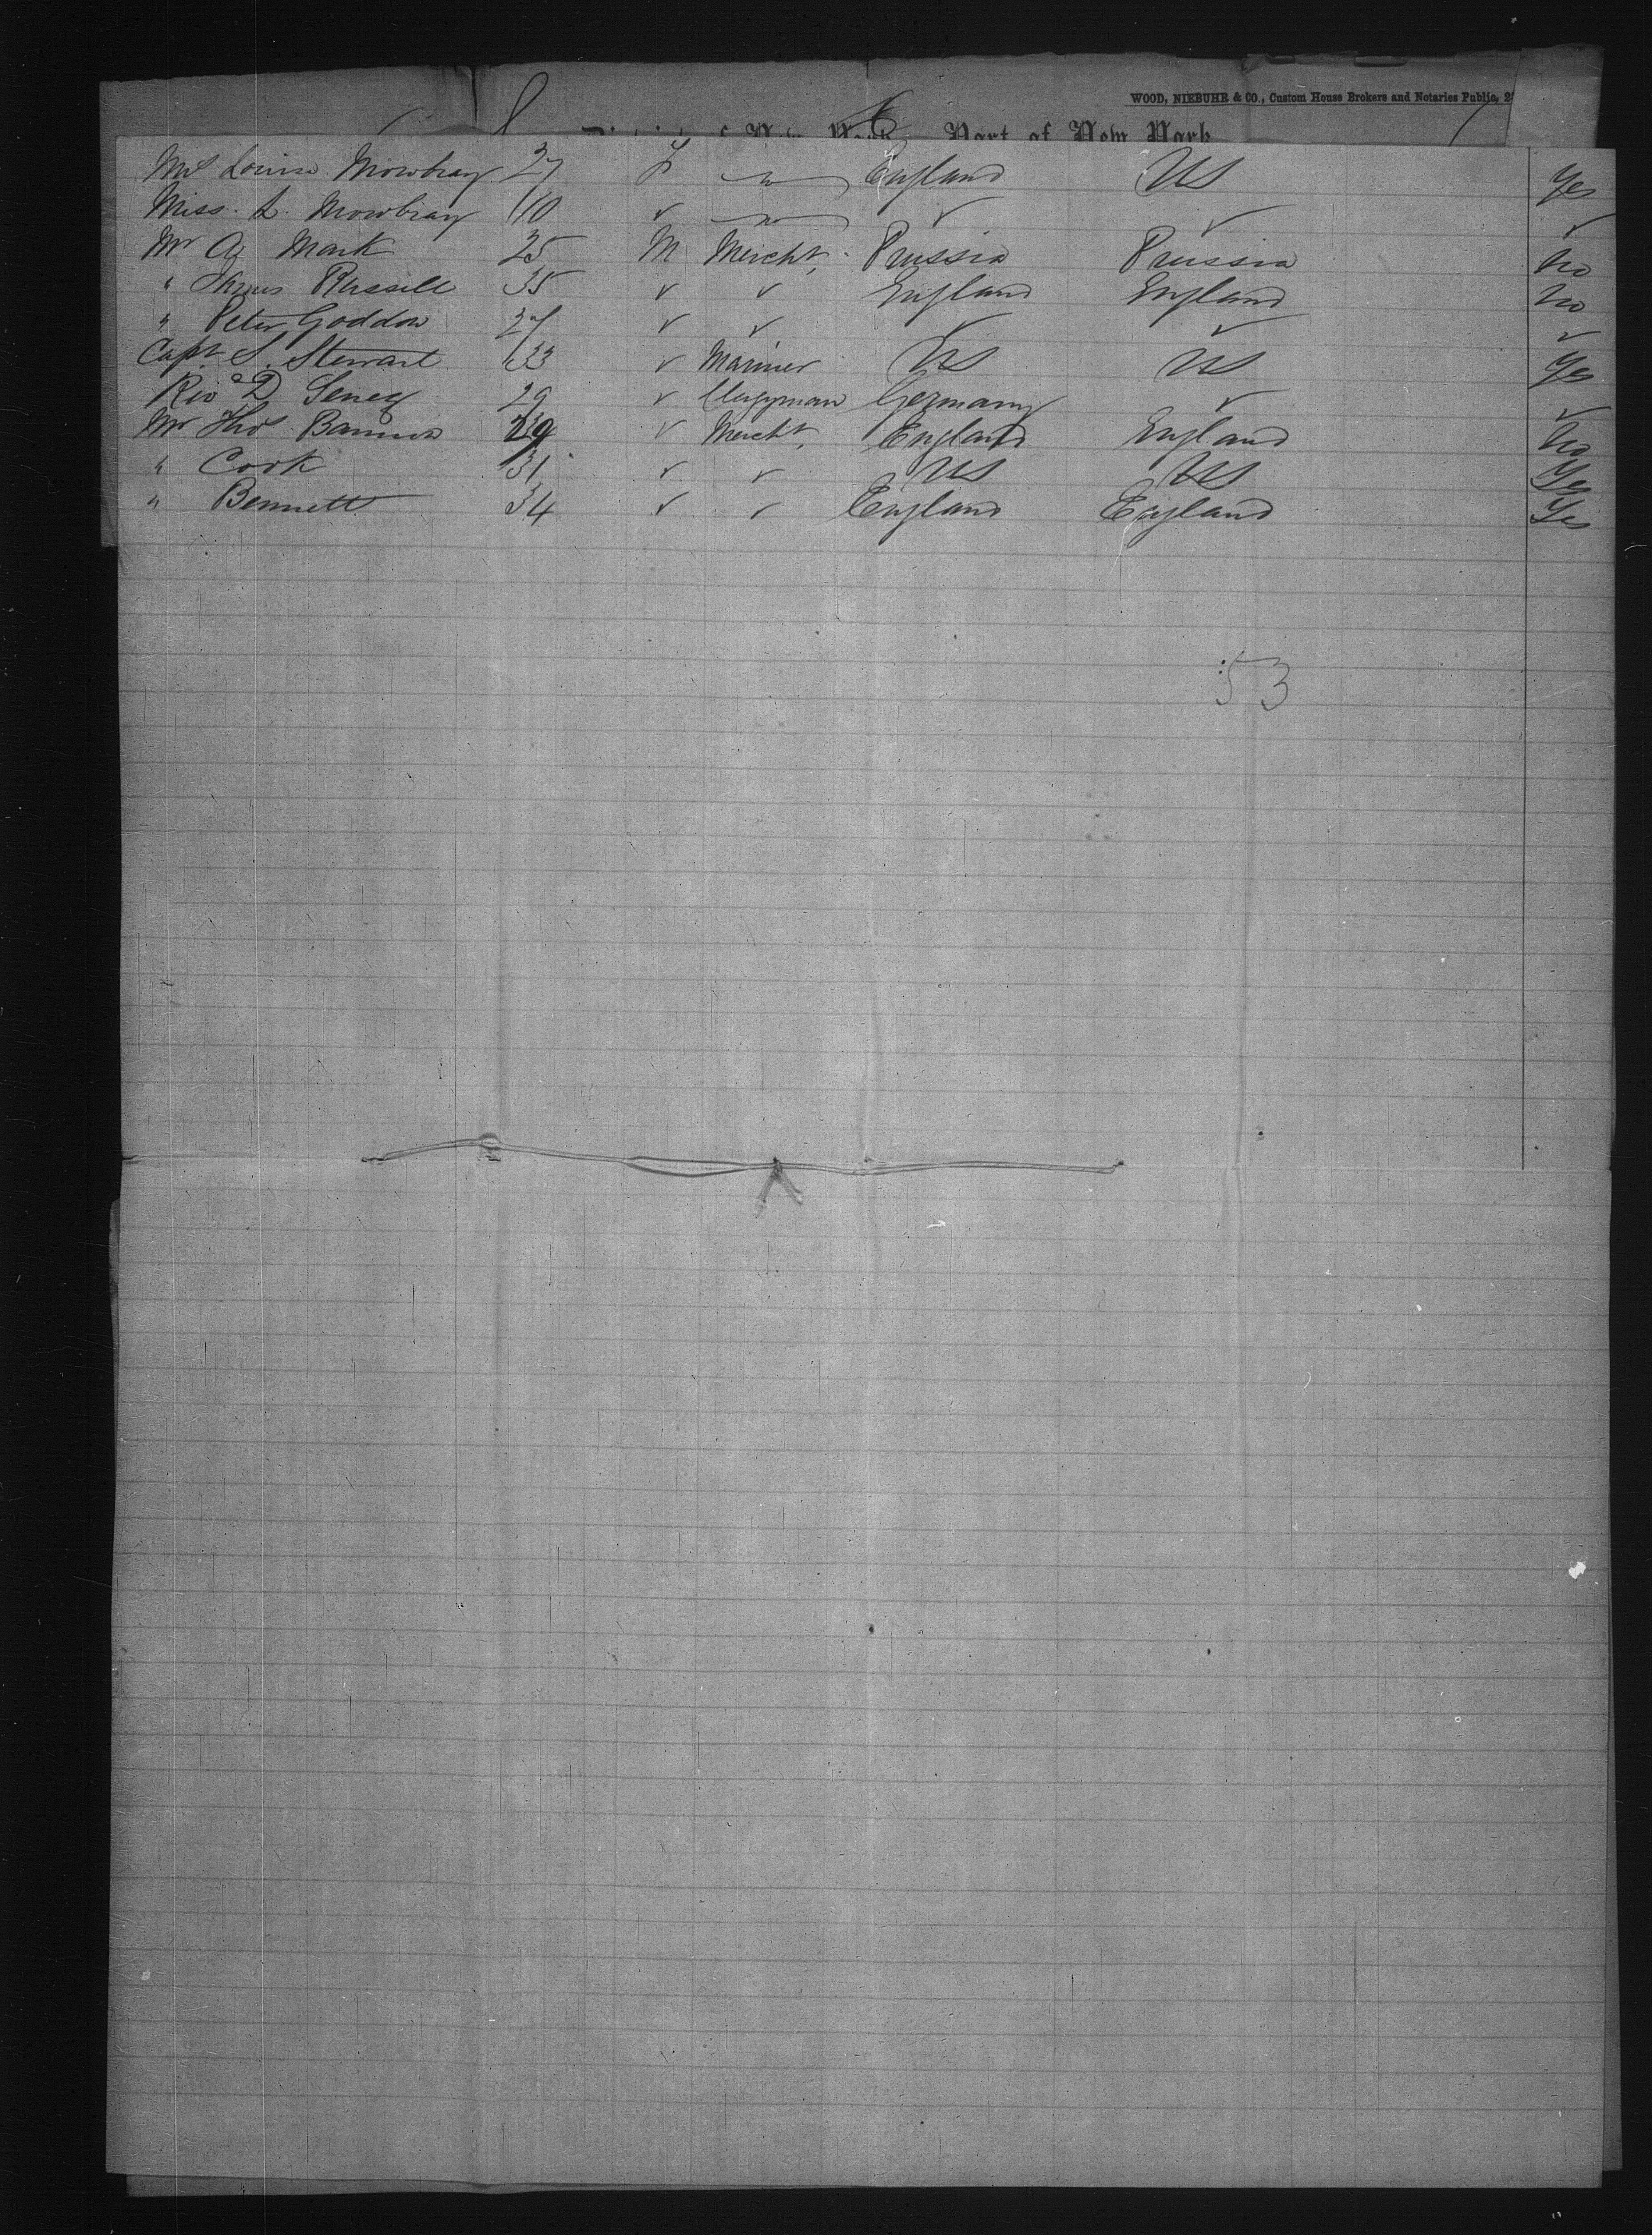 WOOD, NIEBUHR & CO., Custom House Brokers and Notaries Public, 2
of New York Port of New York
Mrs Louise Mowbray 27 F England US Yes
Miss. L. Mowbray 10 ✓ ✓ ✓ ✓
Mr Mark 25 M Mercht. Prussia Prussia No
" James Russell 35 ✓ ✓ England England No
" Peter Goddow 27 ✓ ✓ ✓ ✓ ✓
Capt. S. Stewart 33 ✓ Mariner US US Yes
Rev D. 29 ✓ Clergyman Germany ✓ ✓
Mr Thos 29 ✓ Mercht. England England No
" Cook 31 ✓ ✓ US US Yes
" Bennett 34 ✓ ✓ England England Yes
53